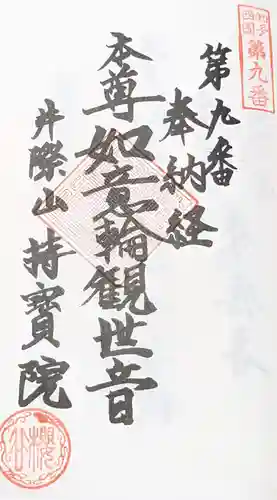 第九番
第九番
奉納経
本尊如意輪観世音
井際山持寳院